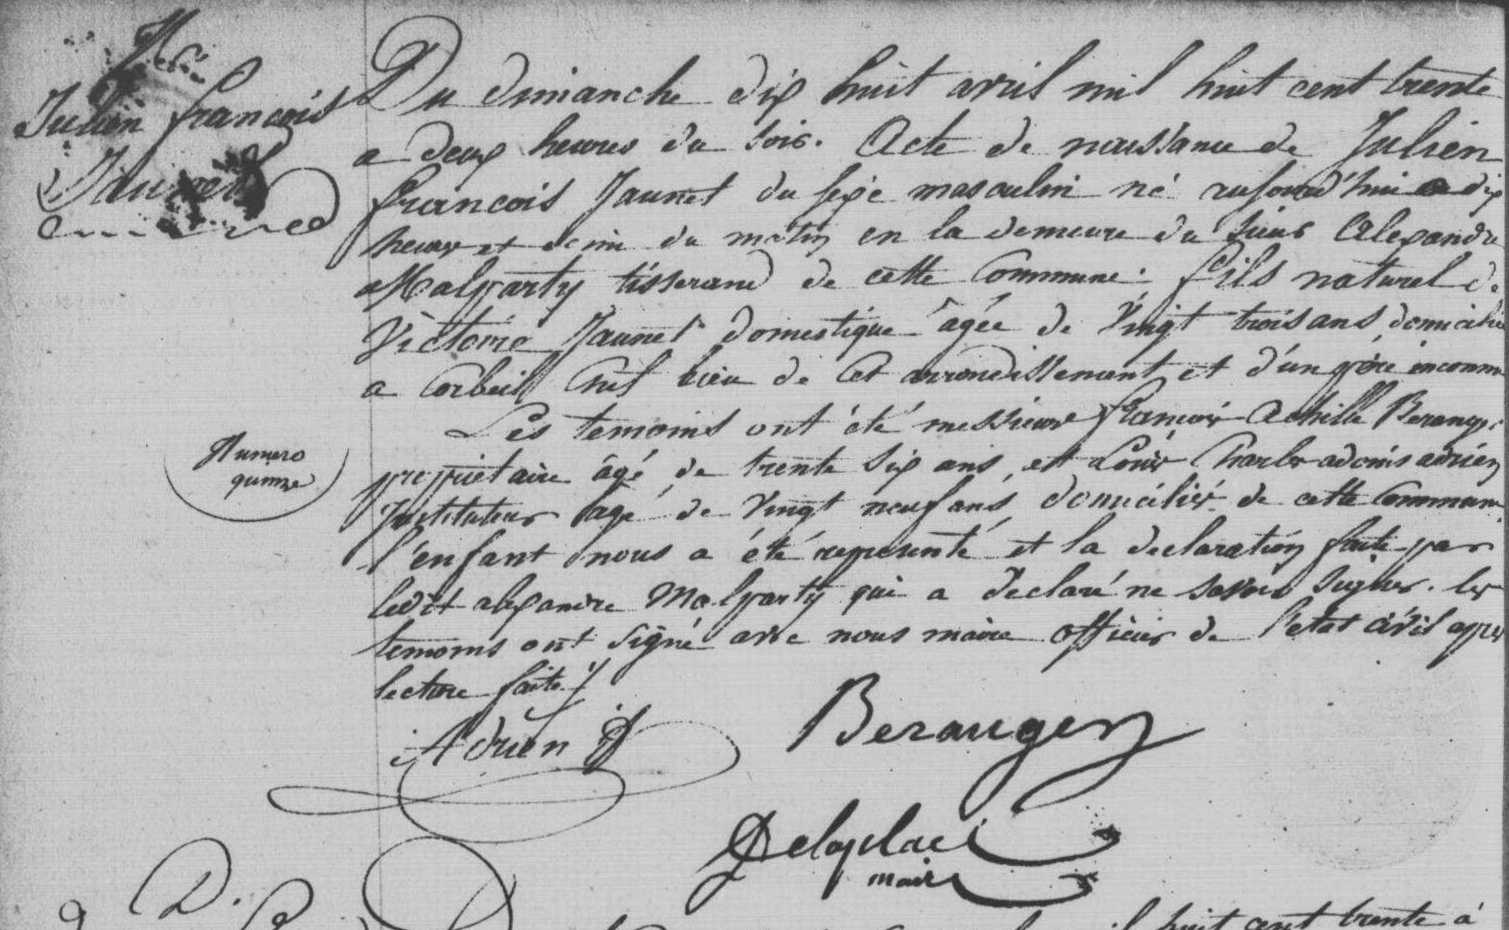 Nce
Julien françois
Jaunet
Du dimanche dix huit avril mil huit cent trente
a deux heures du soir. Acte de naissance de Julien
françois Jaunet du sexe masculin né aujourd'hui a dix
heures et demi du matin en la demeure du sieur Alexandre
Malparty tisserand de cette Commune. fils naturel de
Victoire Jaunet domestique âgée de Vingt trois ans, domiciliée
a Corbeil Chef lieu de Cet arrondissement et d'un père inconnu
Les temoins ont été messieurs françois Achille Beranger
Numero
quinze
propriétaire âgé de trente six ans, et Louis Charles adonis adrien
Instituteur âgé de Vingt neuf ans, domiciliés de cette Commune
l'enfant nous a été representé et la declaration faite par
ledit alexandre Malparty qui a déclaré ne savoir signer. les
temoins ont signé avec nous maire officier de l'etat civil après
lecture faite
Adrien
Beranger
Delaplace
maire
huit cent trente à